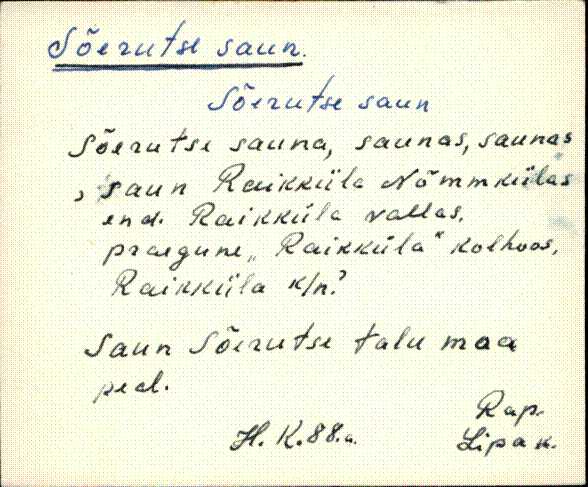 Sõerutse saun.
Sõerutse saun
Sõerutse sauna, saunas, saunas
, saun Raikküla Nõmmkülas
end. Raikküla vallas,
praegune „Raikküla" kolhoos,
Raikküla k/n?
Saun Sõerutse talu maa
peal.
Rap.
H. K. 88.a. Lipa k.